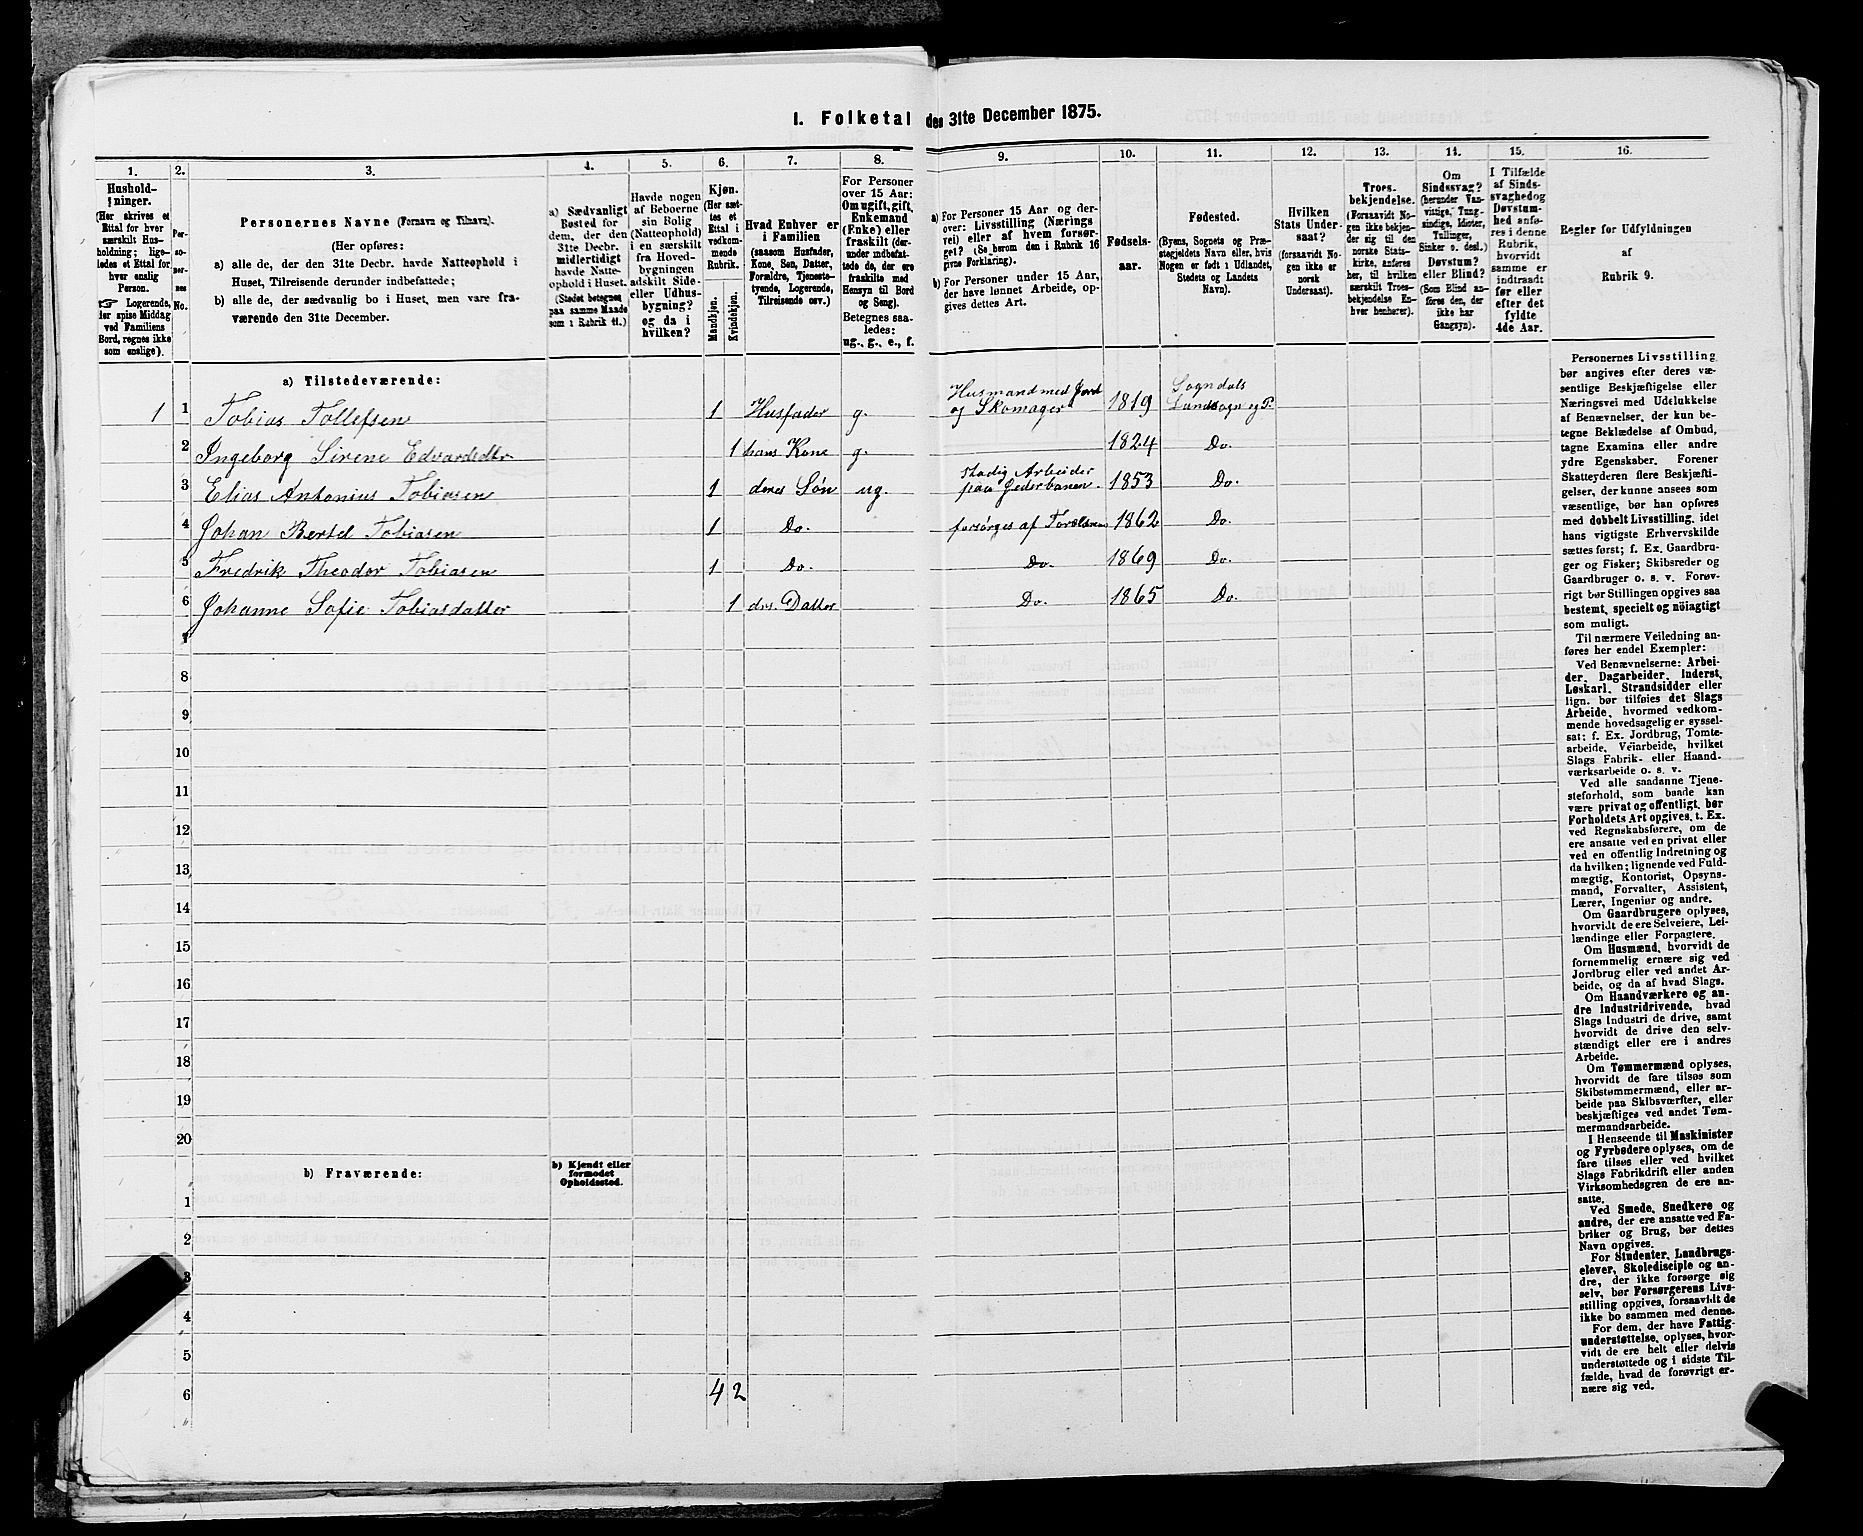 I. Folketal den 31te December 1875.
1.
Hushold-
ninger.
(Her skrives et
Ettal for hver
særskilt Hus-
holdning; lige-
ledes et Ettal for
hver enslig
Person.
☞ Logerende,
der spise Middag
ved Familiens
Bord, regnes ikke
som enslige).
2.
Per-
so-
ner-
nes
No.
3.
Personernes Navne (Fornavn og Tilnavn).
(Her opføres:
a) alle de, der den 31te Decbr. havde Natteophold i
Huset, Tilreisende derunder indbefattede;
b) alle de, der sædvanlig bo i Huset, men vare fra-
værende den 31te December.
4.
a) Sædvanligt
Bosted for
dem, der den
31te Decbr.
midlertidigt
havde Natte-
ophold i Huset.
(Stedet betegnes
paa samme Maade
som i Rubrik 11.)
5.
Havde nogen
af Beboerne
sin Bolig
(Natteophold)
i en særskilt
fra Hoved-
bygningen
adskilt Side-
eller Udhus-
bygning?
og da i
hvilken?
6.
Kjøn.
(Her sæt-
tes et
Ettal i
vedkom-
mende
Rubrik.
Mandkjøn.
Kvindekjøn.
7.
Hvad Enhver er
i Familien
(saasom Husfader,
Kone, Søn, Datter,
Forældre, Tjeneste-
tyende, Logerende,
Tilreisende osv.)
8.
For Personer
over 15 Aar:
Om ugift, gift,
Enkemand
(Enke) eller
fraskilt (der-
under indbefat-
tede de, der ere
fraskilte med
Hensyn til Bord
og Seng).
Betegnes saa-
ledes:
ug., g., e., f.
9.
a) For Personer 15 Aar og der-
over: Livsstilling (Nærings
vei) eller af hvem forsør-
get? (Se herom den i Rubrik 16
givne Forklaring).
b) For Personer under 15 Aar,
der have lønnet Arbeide, op-
gives dettes Art.
10.
Fødsels-
aar.
11.
Fødested.
(Byens, Sognets og Præ-
stegjeldets Navn eller, hvis
Nogen er født i Udlandet,
Stedets og Landets
Navn).
12.
Hvilken
Stats Under-
saat?
(forsaavidt No-
gen ikke er
norsk
Undersaat).
13.
Troes-
bekjendelse.
(Forsaavidt No-
gen ikke bekjen-
der sig til den
norske Stats-
kirke, anføres
her, til hvilken
særskilt Troes-
bekjendelse En-
hver henhører).
14.
Om
Sindssvag?
(herunder Van-
vittige, Tung-
sindige, Idioter,
Tullinger,
Sinker o. desl.)
Døvstum?
eller Blind?
(Som Blind an-
føres den, der
ikke har
Gangsyn).
15.
I Tilfælde
af Sinds-
svaghed og
Døvstum-
hed anfø-
res i denne
Rubrik,
hvorvidt
samme er
indtraadt
før eller
efter det
fyldte
4de Aar.
16.
Regler for Udfyldningen
af
Rubrik 9.
a) Tilstedeværende:
1 1 Tobias Tollefsen 1 Husfader g. Husmand med Jord og Skomager 1819 Sogndals Landsogn og P.
2 Ingeborg Sirene Edvardsdtr 1 hans Kone g. 1824 Do.
3 Elias Antonius Tobiasen 1 deres Søn ug. stadig Arbeider paa Jederbanen. 1853 Do.
4 Johan Bertel Tobiasen 1 Do. forsørges af Forældrene 1862 Do.
5 Fredrik Theodor Tobiasen 1 Do. Do. 1869 Do.
6 Johanne Sofie Tobiasdatter 1 drs. Datter Do. 1865 Do.
7
8
9
10
11
12
13
14
15
16
17
18
19
20
b) Fraværende:
b) Kjendt eller
formodet
Opholdssted.
1
2
3
4
5
6
4 2
Personernes Livsstilling
bør angives efter deres væ-
sentlige Beskjæftigelse eller
Næringsvei med Udelukkelse
af Benævnelser, der kun be-
tegne Beklædelse af Ombud,
tagne Examina eller andre
ydre Egenskaber. Forener
Skatteyderen flere Beskjæfti-
gelser, der kunne ansees som
væsentlige, bør han opføres
med dobbelt Livsstilling, idet
hans vigtigste Erhvervskilde
sættes først; f. Ex. Gaardbru-
ger og Fisker; Skibsreder og
Gaardbruger o. s. v. Forøv-
rigt bør Stillingen opgives saa
bestemt, specielt og nöiagtigt
som muligt.
Til nærmere Veiledning an-
føres her endel Exempler:
Ved Benævnelserne: Arbei-
der, Dagarbeider, Inderst,
Løskarl, Strandsidder eller
lign. bør tilføies det Slags
Arbeide, hvormed vedkom-
mende hovedsagelig er syssel-
sat; f. Ex. Jordbrug, Tomte-
arbeide, Veiarbeide, hvilket
Slags Fabrik- eller Haand-
værksarbeide o. s. v.
Ved alle saadanne Tjene-
steforhold, som baade kan
være privat og offentligt, bør
Forholdets Art opgives, t. Ex.
ved Regnskabsførere, om de
ere ansatte ved en privat eller
ved en offentlig Indretning og
da hvilken; lignende ved Fuld-
mægtig, Kontorist, Opsyns-
mand, Forvalter, Assistent,
Lærer, Ingeniør og andre.
Om Gaardbrugere oplyses,
hvorvidt de ere Selveiere, Lei-
lændinge eller Forpagtere.
Om Husmænd, hvorvidt de
fornemmelig ernære sig ved
Jordbrug eller ved andet Ar-
beide, og da af hvad Slags.
Om Haandværkere og an-
dre Industridrivende, hvad
Slags Industri de drive, samt
hvorvidt de drive den selv-
stændigt eller ere i andres
Arbeide.
Om Tømmermænd oplyses,
hvorvidt de fare tilsøs som
Skibstømmermænd, eller ar-
beide paa Skibsværfter, eller
beskjæftiges ved andet Tøm-
mermandsarbeide.
I Henseende til Maskinister
og Fyrbødere oplyses, om de
fare tilsøs eller ved hvilket
Slags Fabrikdrift eller anden
Virksomhedsgren de ere an-
satte.
Ved Smede, Snedkere og
andre, der ere ansatte ved Fa-
briker og Brug, bør dettes
Navn opgives.
For Studenter, Landbrugs-
elever, Skoledisciple og an-
dre, der ikke forsørge sig
selv, bør Forsørgerens Livs-
stilling opgives, forsaavidt de
ikke bo sammen med denne.
For dem, der have Fattig-
understøttelse, oplyses, hvor-
vidt de ere helt eller delvis
understøttede og i sidste Til-
fælde, hvad de forøvrigt er-
nære sig ved.